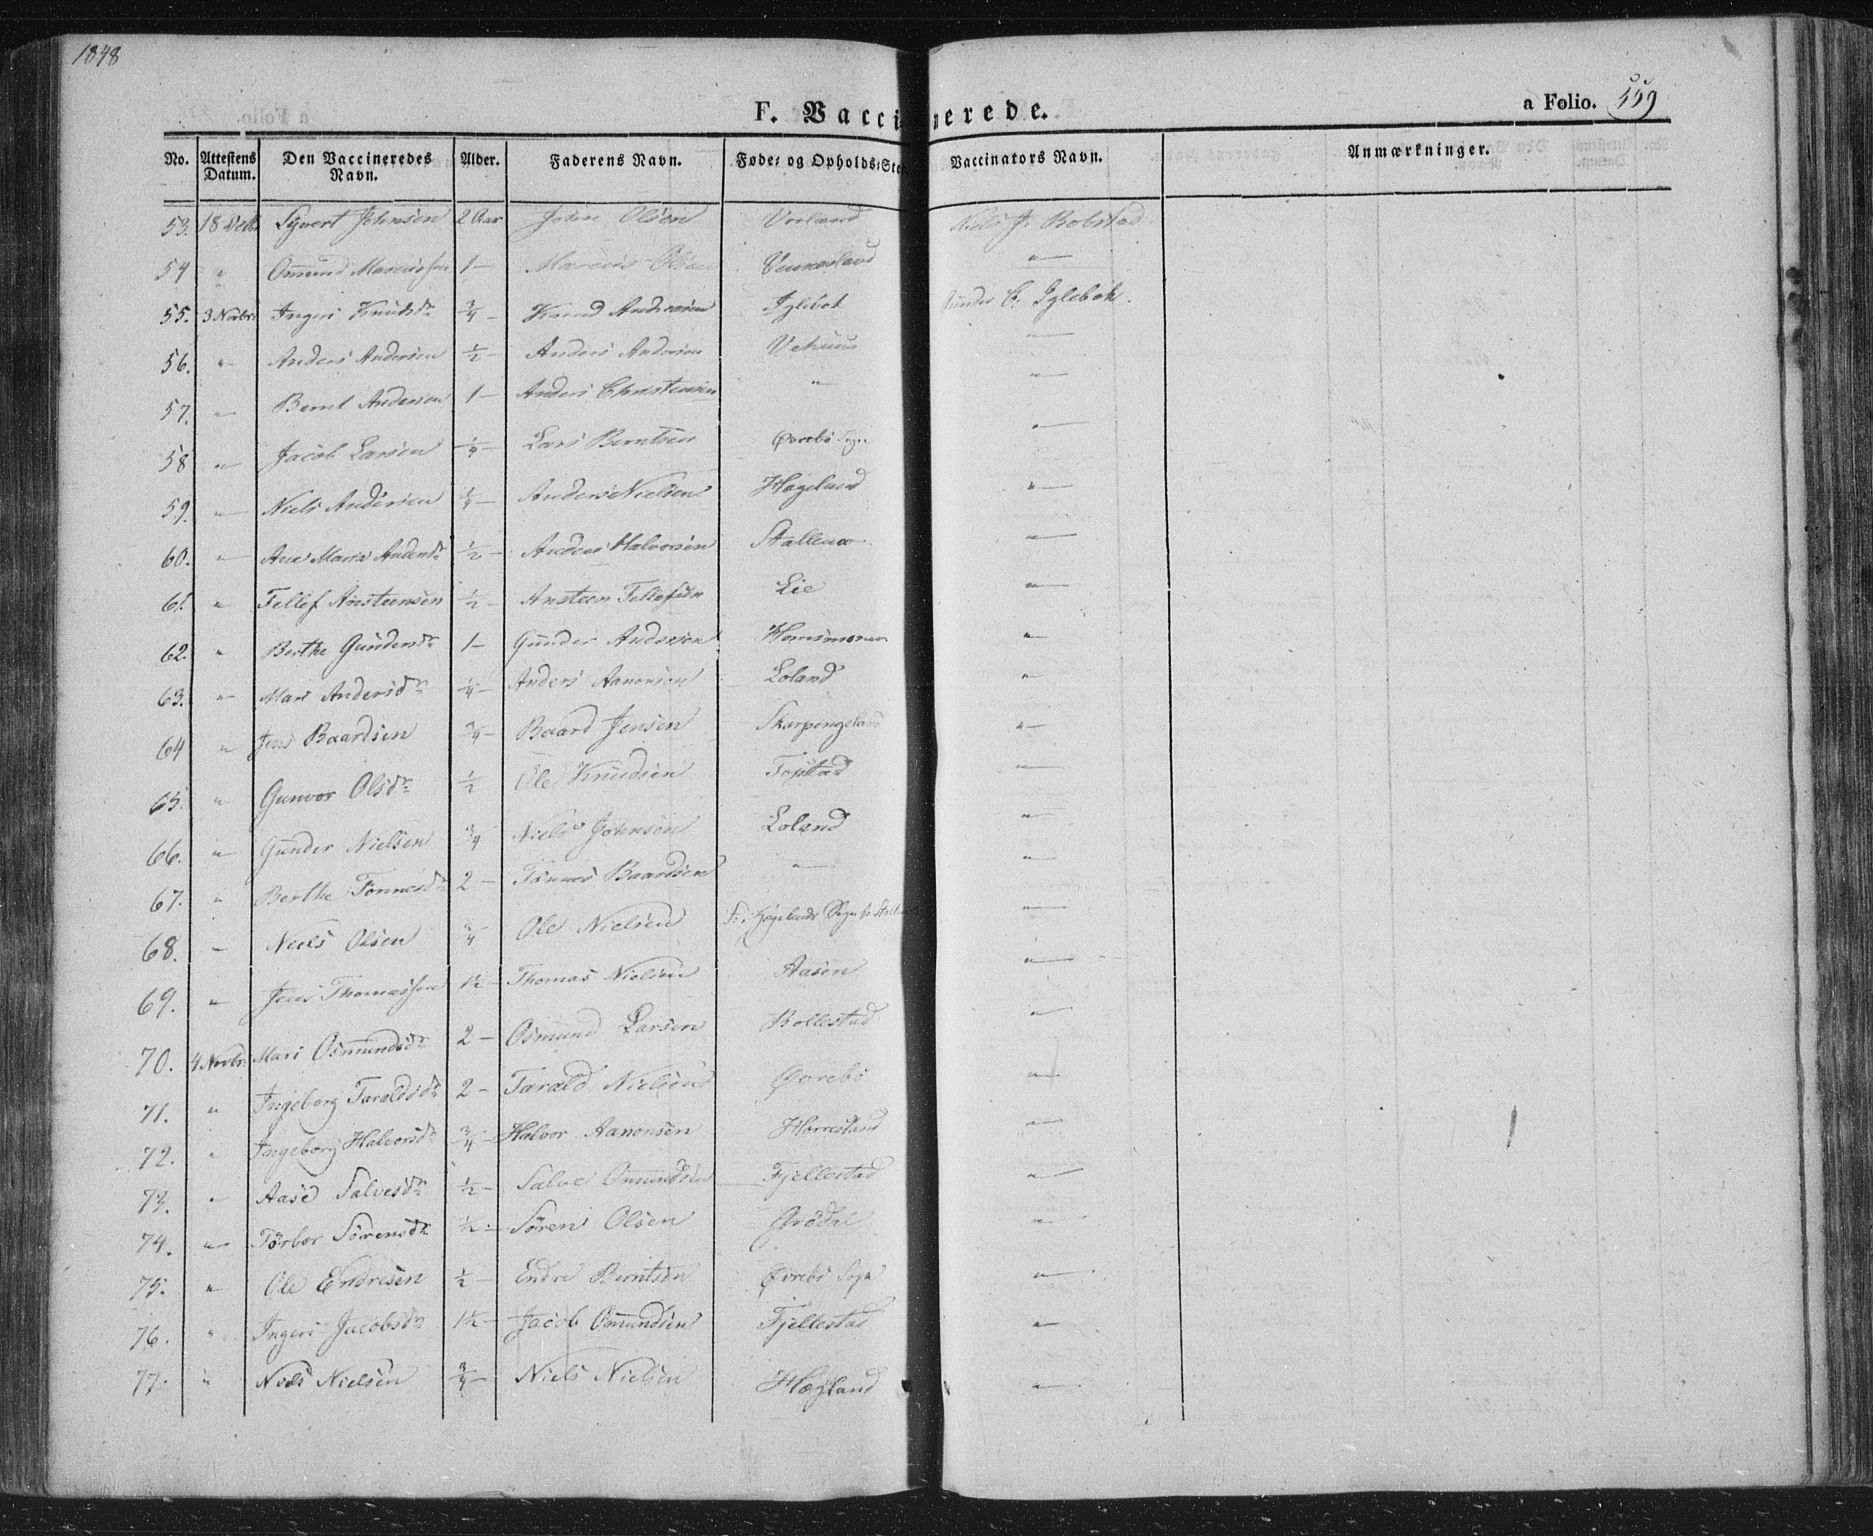 1848
F. Vaccinerede.
a Folio. 559
No. Attestens Datum. Den Vaccineredes Navn. Alder. Faderens Navn. Føde- og Opholds-Sted Vaccinators Navn. Anmærkninger.
53. 18 Sivert Johnsen 2 Aar John Olsen Vorland Niels J. Robstad
54 " Omund Marcussen 1 — Marcus Olsen Vennesland — " —
55. 3 Novbr: Ingeri Knudsdr 3/4 — Knud Andersen Iglebek Gunder C. Iglebek.
56. " Anders Andersen 1/2 — Anders Andersen Vehuus — " —
57. " Bernt Andersen 1 — Anders Christensen " — " —
58 " Jacob Larsen 1/4 — Lars Berntsen Øvrebø Sogn — " —
59. " Niels Andersen 1/4 — Anders Nielsen Høgeland — " —
60. " Ane Maria Andersdr 1/2 — Anders Halvorsen Stallemo — " —
61. " Tellef Ansteensen 1/2 — Ansteen Tellefsen Lie — " —
62. " Berthe Gundersdr 1 — Gunder Andersen Homsmoen — " —
63. " Mari Andersdr 1/4 — Anders Aanonsen Loland — " —
64 " Jens Baardsen 3/4 — Baard Jensen Skarpengeland — " —
65. " Gunvor Olsdr 1/2 Ole Knudsen Topstad — " —
66. " Gunder Nielsen 3/4 Niels Johnsen Loland — " —
67. " Berthe Tønnesdr 2 — Tønnes Baardsen — " — — " —
68. " Niels Olsen 3/4 Ole Nielsen F: Høgelands Sogn — " —
69. " Jens Thomassen 1 1/2 — Thomas Nielsen Aasen — " —
70. 4 Novbr: Mari Osmundsdr 2 — Osmund Larsen Bollestad — " —
71. " Ingeborg Taraldsdr 2 — Tarald Nielsen Øvrebø — " —
72. " Ingeborg Halvorsdr 3/4 — Halvor Aanonsen Horrestand — " —
73. " Aase Salvesdr 1/2 — Salve Omundsen Fjellestad — " —
74. " Torbor Sørensdr 1/2 — Søren Olsen Grødal — " —
75. " Ole Endresen 1/2 — Endre Berntsen Øvrebø Sogn — " —
76. " Ingeri Jacobsdr 1 1/2 — Jacob Omundsen Fjellestad — " —
77. " Niels Nielsen 3/4 — Niels Nielsen Høgland — " —